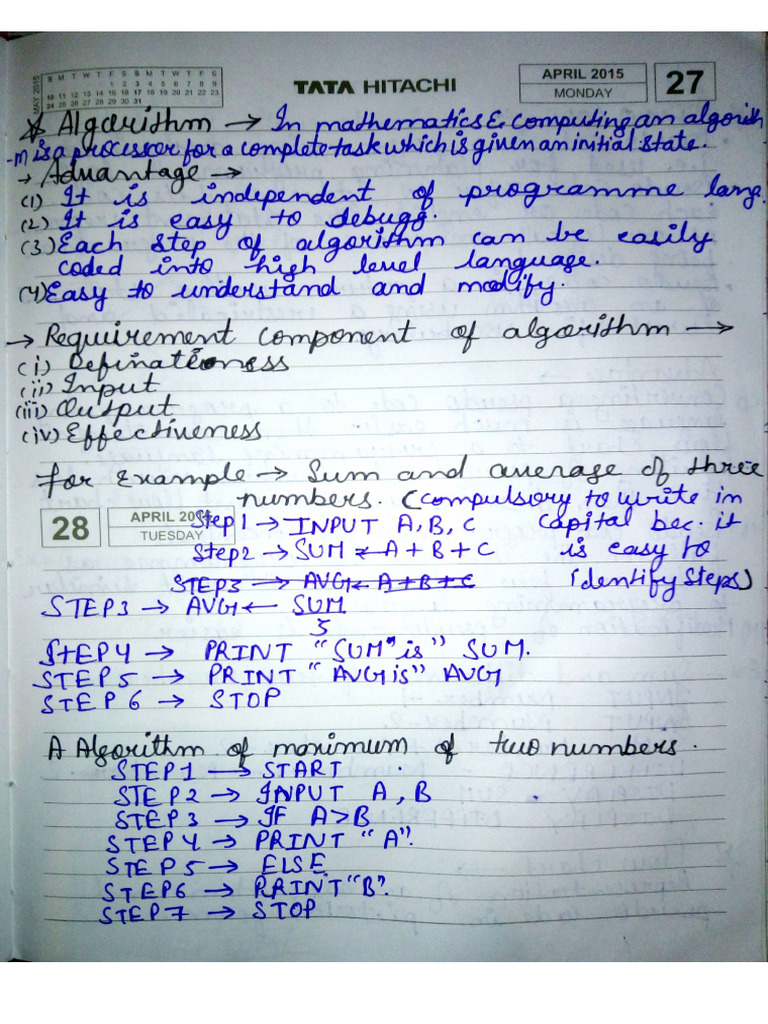 MAY 2015
S M T W T F S S M T W T F S
1 2 3 4 5 6 7 8 9
10 11 12 13 14 15 16 17 18 19 20 21 22 23
24 25 26 27 28 29 30 31
TATA HITACHI
APRIL 2015
MONDAY
27
Algorithm → In mathematics & computing an algorith
-m is a processor for a complete task which is given an initial state.
→ Advantage →
(1) It is independent of programme lang.
(2) It is easy to debugg.
(3) Each step of algorithm can be easily
coded into high level language.
(4) Easy to understand and modify.
→ Requirement component of algorithm →
(i) Definateness
(ii) Input
(iii) Output
(iv) Effectiveness
For Example → Sum and average of three
numbers. (compulsory to write in
28
APRIL 201
TUESDAY
Step 1 → INPUT A, B, C capital bec. it
Step 2 → SUM ← A + B + C is easy to
STEP3 → AVG ← A + B + C identify steps)
STEP3 → AVG ← SUM
3
STEP4 → PRINT "SUM" is" SUM.
STEP5 → PRINT "AVG is" AVG
STEP6 → STOP
A Algorithm of maximum of two numbers.
STEP1 → START
STEP2 → INPUT A, B
STEP3 → IF A>B
STEP4 → PRINT "A".
STEP5 → ELSE
STEP6 → PRINT "B".
STEP7 → STOP